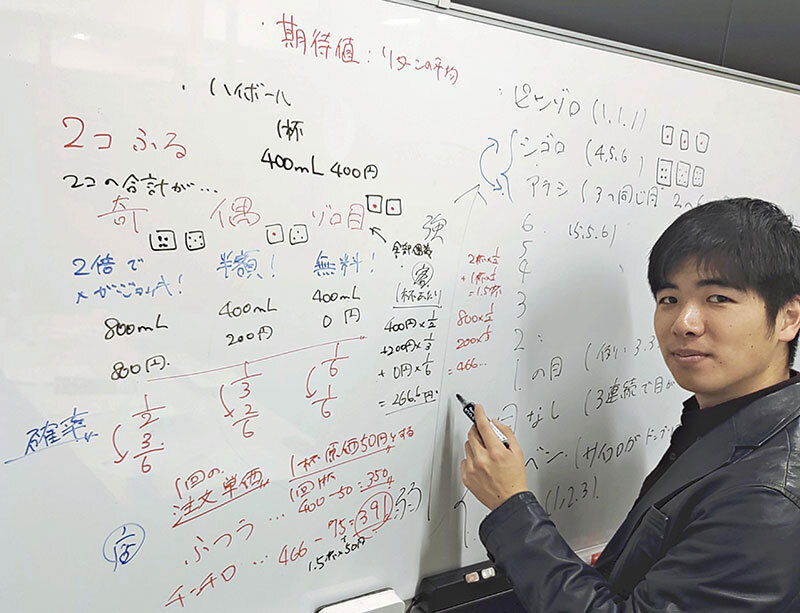 ・期待値：リターンの平均
・ハイボール
1杯
400mL 400円
2コふる
2コの合計が…
奇 偶 ゾロ目
全部偶数
2倍で
メガジョッキ！
半額！
無料！
800mL 400mL 400mL
800円 200円 0円
確率は
1/2 1/3 1/6
3/6 2/6 1/6
客
1杯あたり
400円×1/2
+200円×1/3
+0円×1/6
=266.6円
2杯×1/2
+1杯×1/2
=1.5杯
800×1/2
200×1/3
=466…
1回の
注文単価
1杯原価50円とする
1回1杯
ふつう … 400-50=350
チンチロ … 466-75=391
1.5杯×50円
店
強
ピンゾロ (1.1.1)
シゴロ (4.5.6)
アラシ (3つ同じ目
6
5
4
3
2
1の目
なし (3連続で目が
(1.2.3)
弱